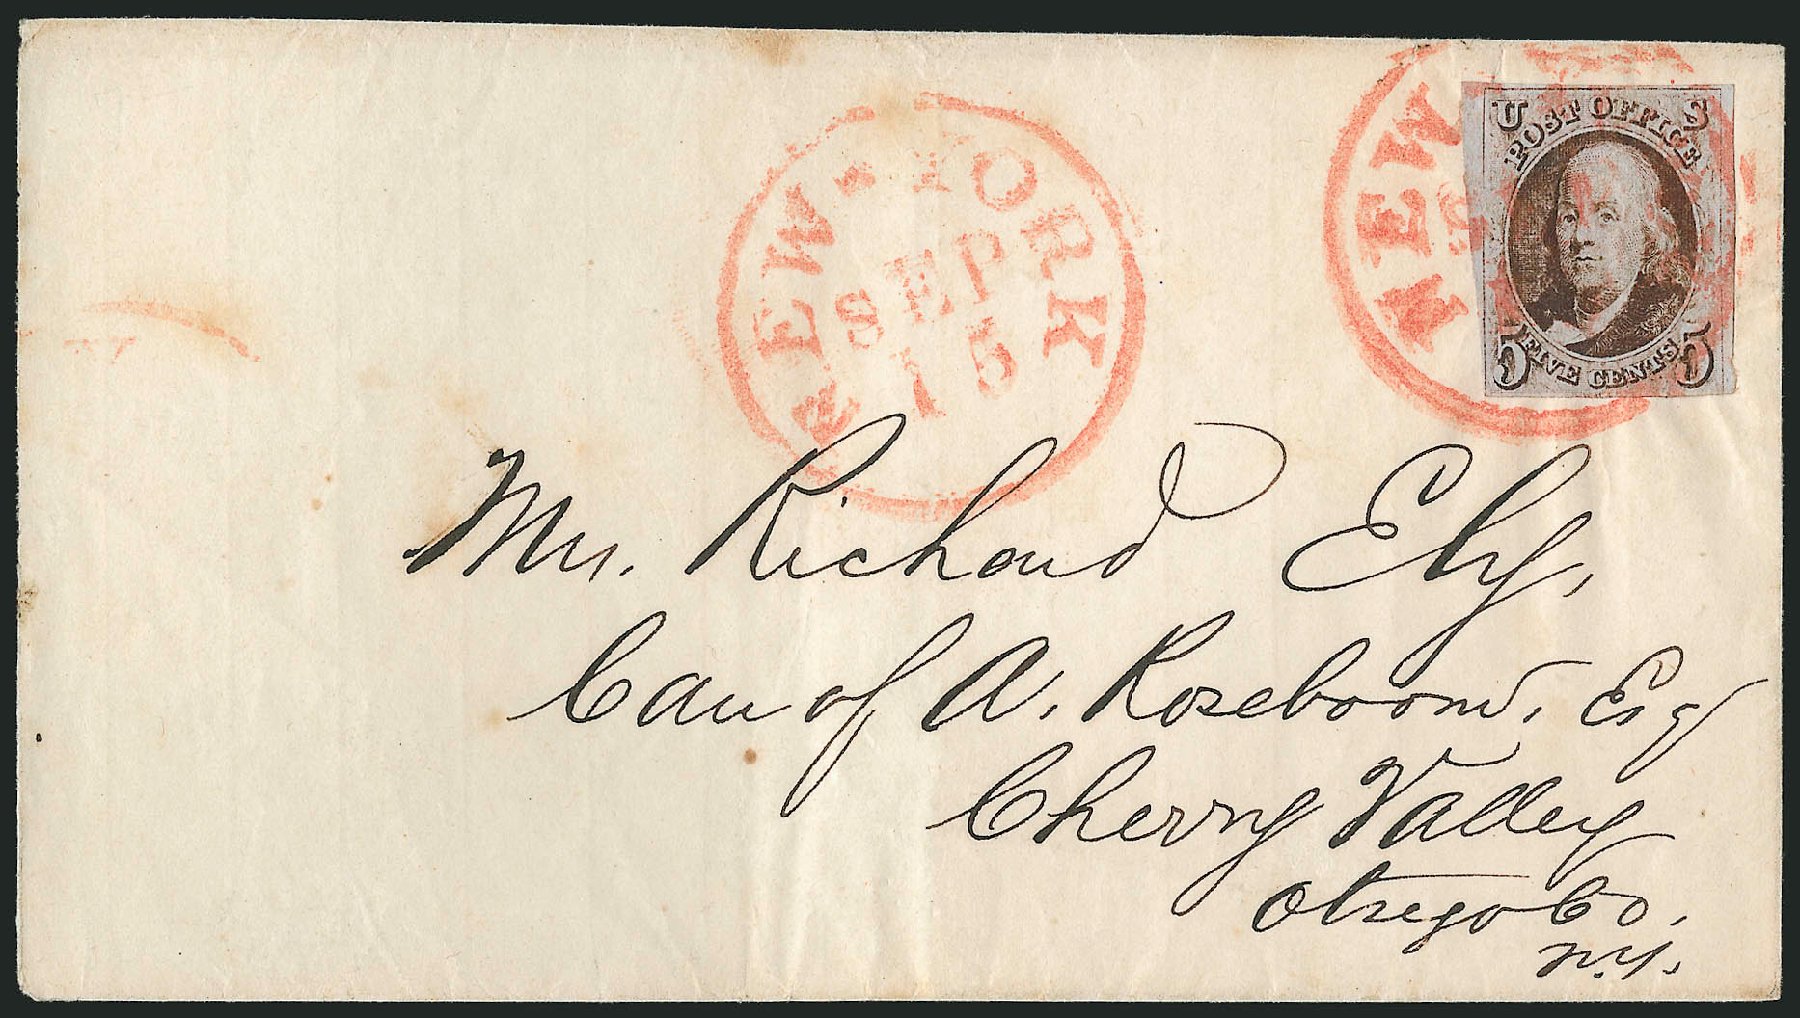 NEW-YORK
SEP
15
NEW
U S
POST OFFICE
5 5
FIVE CENTS
Mr. Richard Ely,
Care of A. Roseboom, Esq
Cherry Valley
Otsego Co.
N.Y.